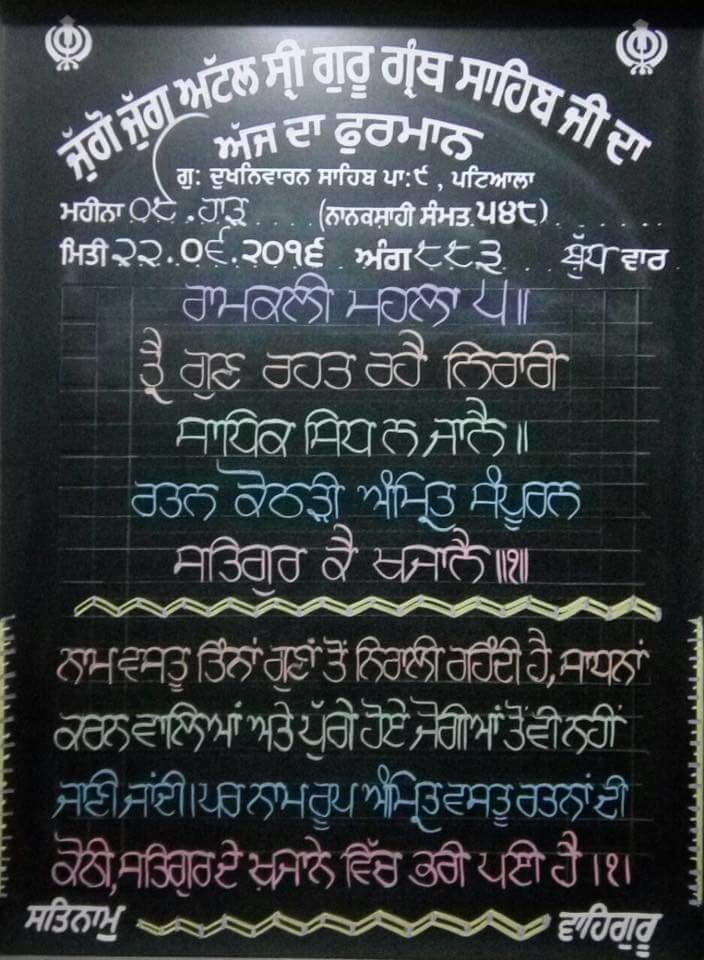 ਜੁੱਗੋ ਜੁੱਗ ਅੱਟਲ ਸ੍ਰੀ ਗੁਰੂ ਗ੍ਰੰਥ ਸਾਹਿਬ ਜੀ ਦਾ
ਅੱਜ ਦਾ ਫੁਰਮਾਨ
ਗੁ: ਦੁਖਨਿਵਾਰਨ ਸਾਹਿਬ ਪਾ:੯, ਪਟਿਆਲਾ
ਮਹੀਨਾ ੦੮.ਹਾੜ (ਨਾਨਕਸਾਹੀ ਸੰਮਤ ੫੪੮)
ਮਿਤੀ ੨੨.੦੬.੨੦੧੬ ਅੰਗ ੮੮੩ ਬੁੱਧ ਵਾਰ
ਰਾਮਕਲੀ ਮਹਲਾ ੫॥
ਤ੍ਰੈ ਗੁਣ ਰਹਤ ਰਹੈ ਨਿਰਾਰੀ
ਸਾਧਿਕ ਸਿਧ ਨ ਜਾਨੈ॥
ਰਤਨ ਕੋਠੜੀ ਅੰਮ੍ਰਿਤ ਸੰਪੂਰਨ
ਸਤਿਗੁਰ ਕੈ ਖਜਾਨੈ॥੧॥
ਨਾਮ ਵਸਤੂ ਤਿੰਨਾਂ ਗੁਣਾਂ ਤੋਂ ਨਿਰਾਲੀ ਰਹਿੰਦੀ ਹੈ, ਸਾਧਨਾਂ
ਕਰਨ ਵਾਲਿਆਂ ਅਤੇ ਪੁੱਗੇ ਹੋਏ ਜੋਗੀਆਂ ਤੋਂ ਵੀ ਨਹੀਂ
ਜਾਣੀ ਜਾਂਦੀ। ਪਰ ਨਾਮ ਰੂਪ ਅੰਮ੍ਰਿਤ ਵਸਤੂ ਰਤਨਾਂ ਦੀ
ਕੋਠੀ, ਸਤਿਗੁਰ ਦੇ ਖ਼ਜਾਨੇ ਵਿੱਚ ਭਰੀ ਪਈ ਹੈ।੧।
ਸਤਿਨਾਮੁ ਵਾਹਿਗੁਰੂ